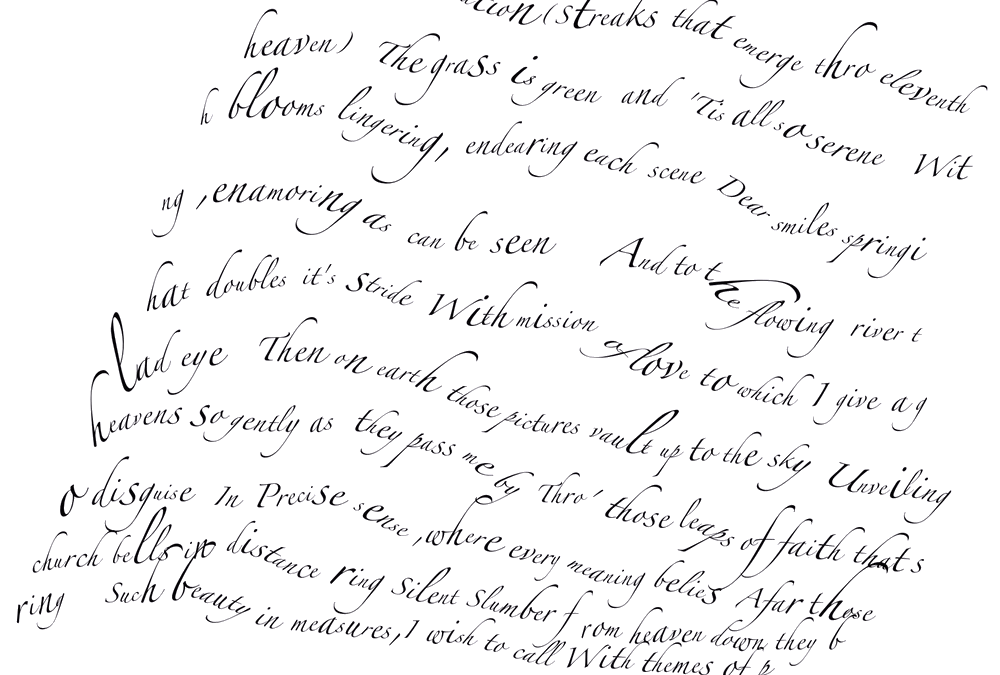 (streaks that emerge thro eleventh
heaven) The grass is green and 'Tis all so serene Wit
h blooms lingering, endearing each scene Dear smiles springi
ng ,enamoring as can be seen And to the flowing river t
hat doubles it's stride With mission of love to which I give a g
lad eye Then on earth those pictures vault up to the sky Unveiling
heavens so gently as they pass me by Thro' those leaps of faith that s
o disguise In Precise sense ,where every meaning belies Afar those
church bells in distance ring Silent Slumber f rom heaven down they b
ring Such beauty in measures,I wish to call With themes of p